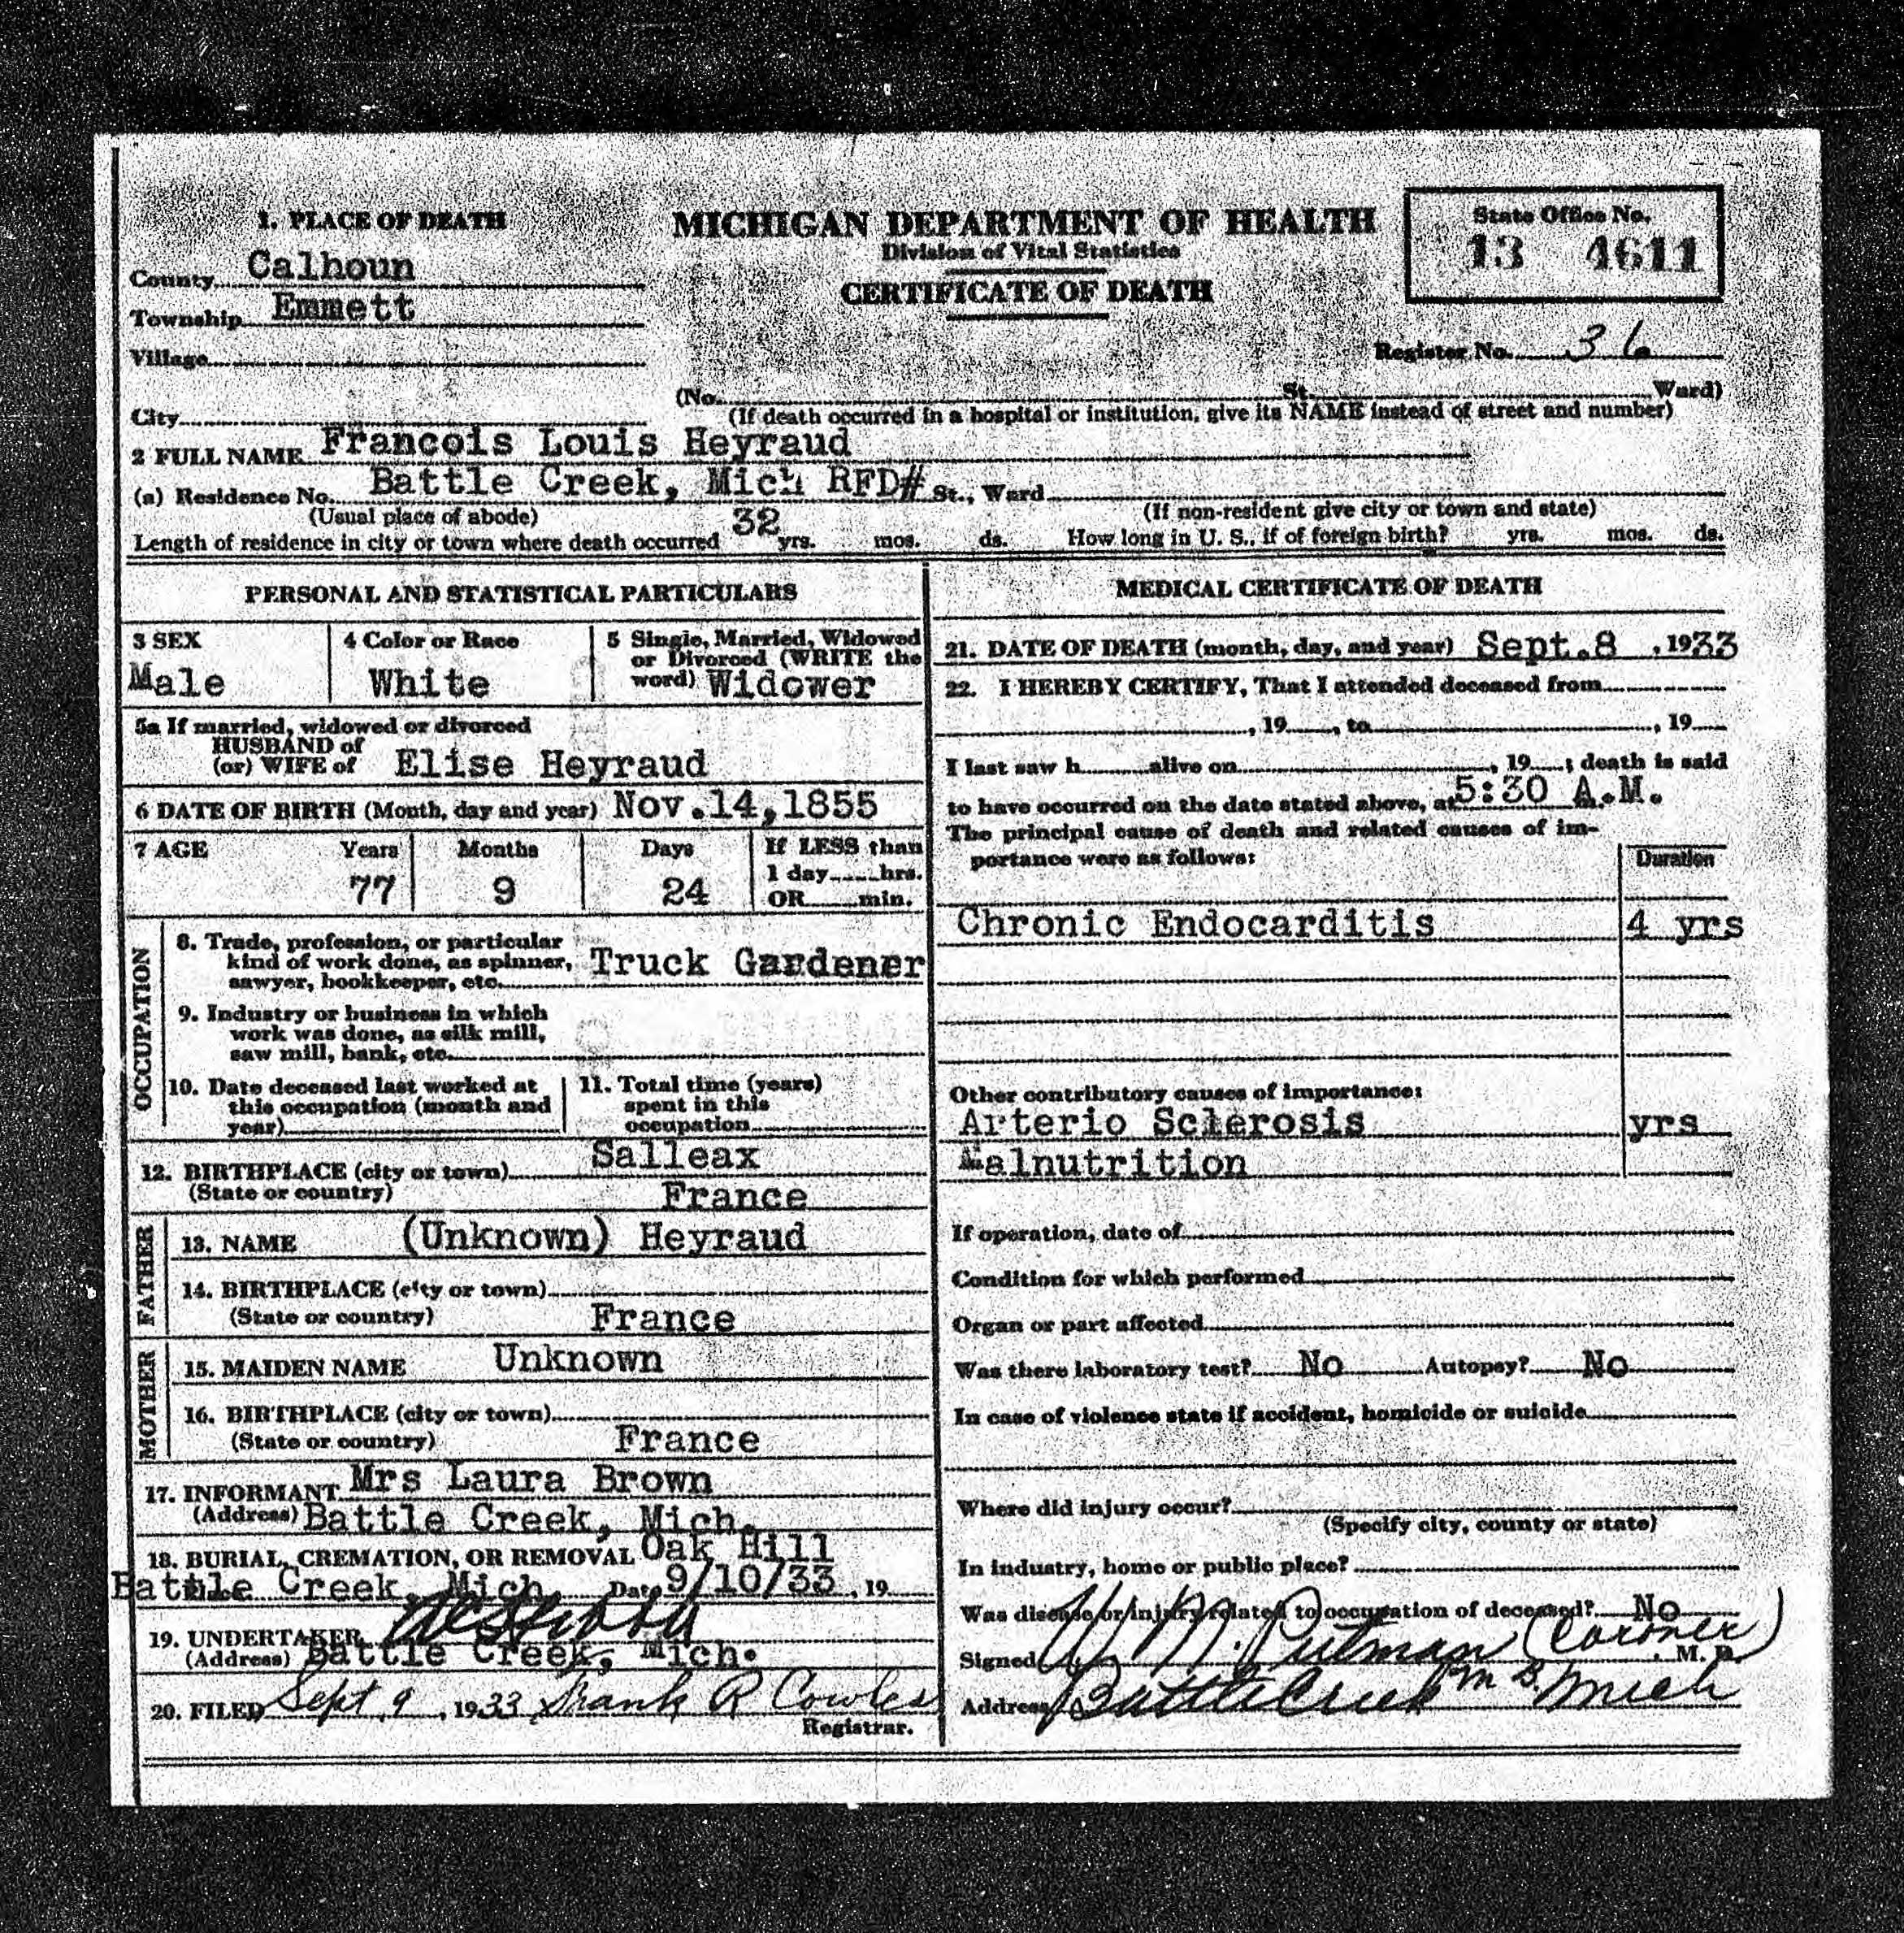 1. PLACE OF DEATH
County Calhoun
Township Emmett
Village
City
MICHIGAN DEPARTMENT OF HEALTH
Division of Vital Statistics
CERTIFICATE OF DEATH
State Office No.
13 4611
Register No. 36
(No. St. Ward)
(If death occurred in a hospital or institution, give its NAME instead of street and number)
2 FULL NAME Francois Louis Heyraud
(a) Residence No. Battle Creek, Mich RFD# St., Ward
(Usual place of abode) (If non-resident give city or town and state)
Length of residence in city or town where death occurred 32 yrs. mos. ds. How long in U. S., if of foreign birth? yrs. mos. ds.
PERSONAL AND STATISTICAL PARTICULARS
3 SEX
Male
4 Color or Race
White
5 Single, Married, Widowed
or Divorced (WRITE the
word) Widower
5a If married, widowed or divorced
HUSBAND of
(or) WIFE of Elise Heyraud
6 DATE OF BIRTH (Month, day and year) Nov.14,1855
7 AGE Years Months Days If LESS than
1 day hrs.
77 9 24 OR min.
OCCUPATION
8. Trade, profession, or particular
kind of work done, as spinner, Truck Gardener
sawyer, bookkeeper, etc.
9. Industry or business in which
work was done, as silk mill,
saw mill, bank, etc.
10. Date deceased last worked at
this occupation (month and
year)
11. Total time (years)
spent in this
occupation
12. BIRTHPLACE (city or town) Salleax
(State or country) France
FATHER
13. NAME (Unknown) Heyraud
14. BIRTHPLACE (city or town)
(State or country) France
MOTHER
15. MAIDEN NAME Unknown
16. BIRTHPLACE (city or town)
(State or country) France
17. INFORMANT Mrs Laura Brown
(Address) Battle Creek, Mich.
18. BURIAL, CREMATION, OR REMOVAL Oak Hill
Battle Creek, Mich. Date 9/10/33, 19
19. UNDERTAKER
(Address) Battle Creek, Mich.
20. FILED Sept 9, 1933 Frank R Cowles
Registrar.
MEDICAL CERTIFICATE OF DEATH
21. DATE OF DEATH (month, day, and year) Sept.8, 1933
22. I HEREBY CERTIFY, That I attended deceased from
, 19 , to , 19
I last saw h alive on , 19 ; death is said
to have occurred on the date stated above, at 5:30 A.M.
The principal cause of death and related causes of im-
portance were as follows:
Duration
Chronic Endocarditis 4 yrs
Other contributory causes of importance:
Arterio Sclerosis yrs
Malnutrition
If operation, date of
Condition for which performed
Organ or part affected
Was there laboratory test? No Autopsy? No
In case of violence state if accident, homicide or suicide
Where did injury occur?
(Specify city, county or state)
In industry, home or public place?
Was disease or injury related to occupation of deceased? No
Signed W. M. Putman (Coroner) M. D.
Address Battle Creek Mich